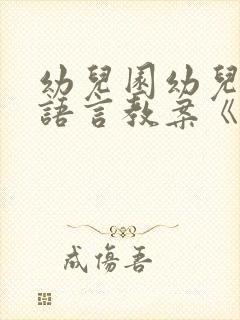 幼兒園幼兒
語言教案《
成傷吾